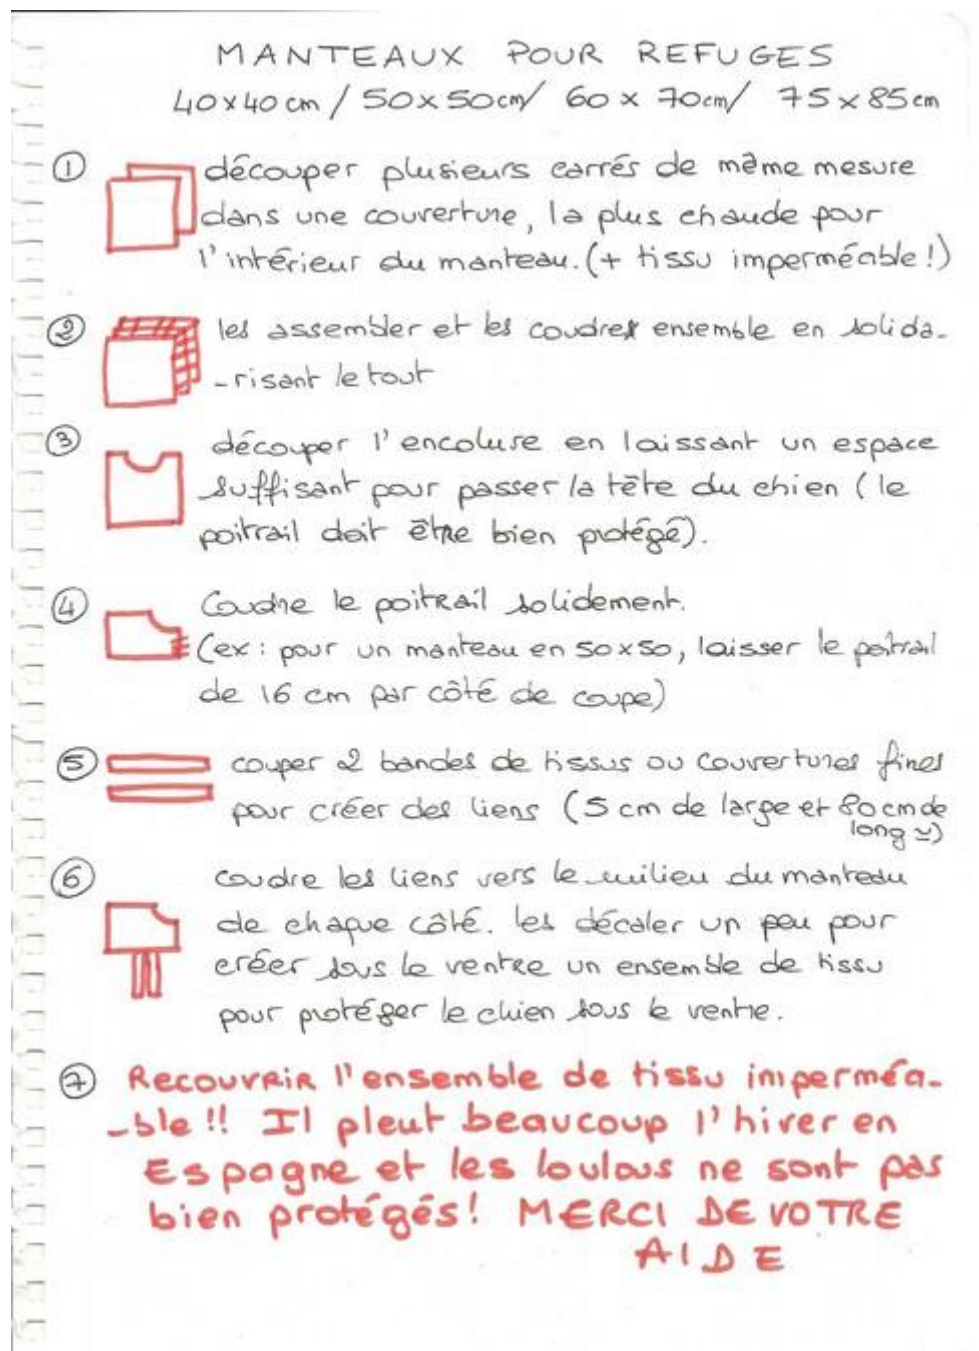 MANTEAUX POUR REFUGES
40x40cm / 50x50cm / 60 x 70cm / 75 x 85cm
① découper plusieurs carrés de même mesure
dans une couverture, la plus chaude pour
l'intérieur du manteau. (+ tissu imperméable !)
② les assembler et les coudres ensemble en solida-
-risant le tout
③ découper l'encolure en laissant un espace
suffisant pour passer la tête du chien (le
poitrail doit être bien protégé).
④ Coudre le poitrail solidement.
(ex : pour un manteau en 50x50, laisser le poitrail
de 16 cm par côté de coupe)
⑤ couper 2 bandes de tissus ou couvertures fines
pour créer des liens (5 cm de large et 80cm de
long ≃)
⑥ coudre les liens vers le milieu du manteau
de chaque côté. les décaler un peu pour
créer sous le ventre un ensemble de tissu
pour protéger le chien sous le ventre.
⑦ Recouvrir l'ensemble de tissu imperméa-
-ble !! Il pleut beaucoup l'hiver en
Espagne et les loulous ne sont pas
bien protégés ! MERCI DE VOTRE
AIDE